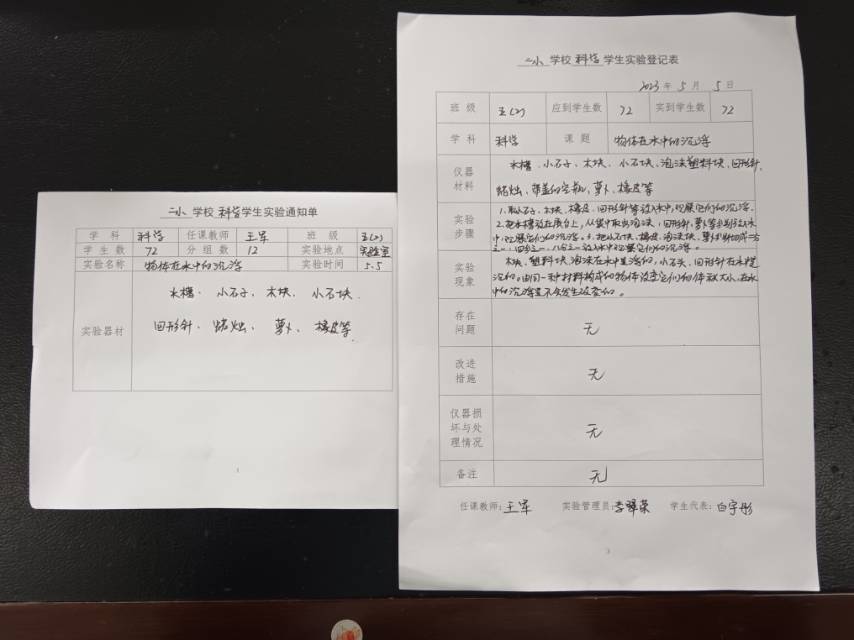 二小 学校 科学 学生实验通知单
学科 科学 任课教师 王军 班级 五(2)
学生数 72 分组数 12 实验地点 实验室
实验名称 物体在水中的沉浮 实验时间 5.5
实验器材
水槽、小石子、木块、小石块、
回形针、蜡烛、萝卜、橡皮等
二小 学校 科学 学生实验登记表
2023年5月5日
班级 五(2) 应到学生数 72 实到学生数 72
学科 科学 课题 物体在水中的沉浮
仪器材料
水槽、小石子、木块、小石块、泡沫塑料块、回形针、
蜡烛、带盖的空瓶、萝卜、橡皮等
实验步骤
1.取小石子、木块、橡皮、回形针等放入水中,观察它们的沉浮。
2.把水槽放在展台上,从袋中取出泡沫块、回形针、萝卜等分别放入水
中,观察它们的沉浮。3.把小石块、橡皮、泡沫块、萝卜分别切成二分
之一、四分之一、八分之一放入水中观察它们的沉浮。
实验现象
木块、塑料块、泡沫在水中是浮的,小石头、回形针在水里是
沉的。由同一种材料构成的物体改变它们的体积大小,在水
中的沉浮是不会发生改变的。
存在问题 无
改进措施 无
仪器损坏与处理情况 无
备注 无
任课教师:王军 实验管理员:李翠荣 学生代表:白宇彤